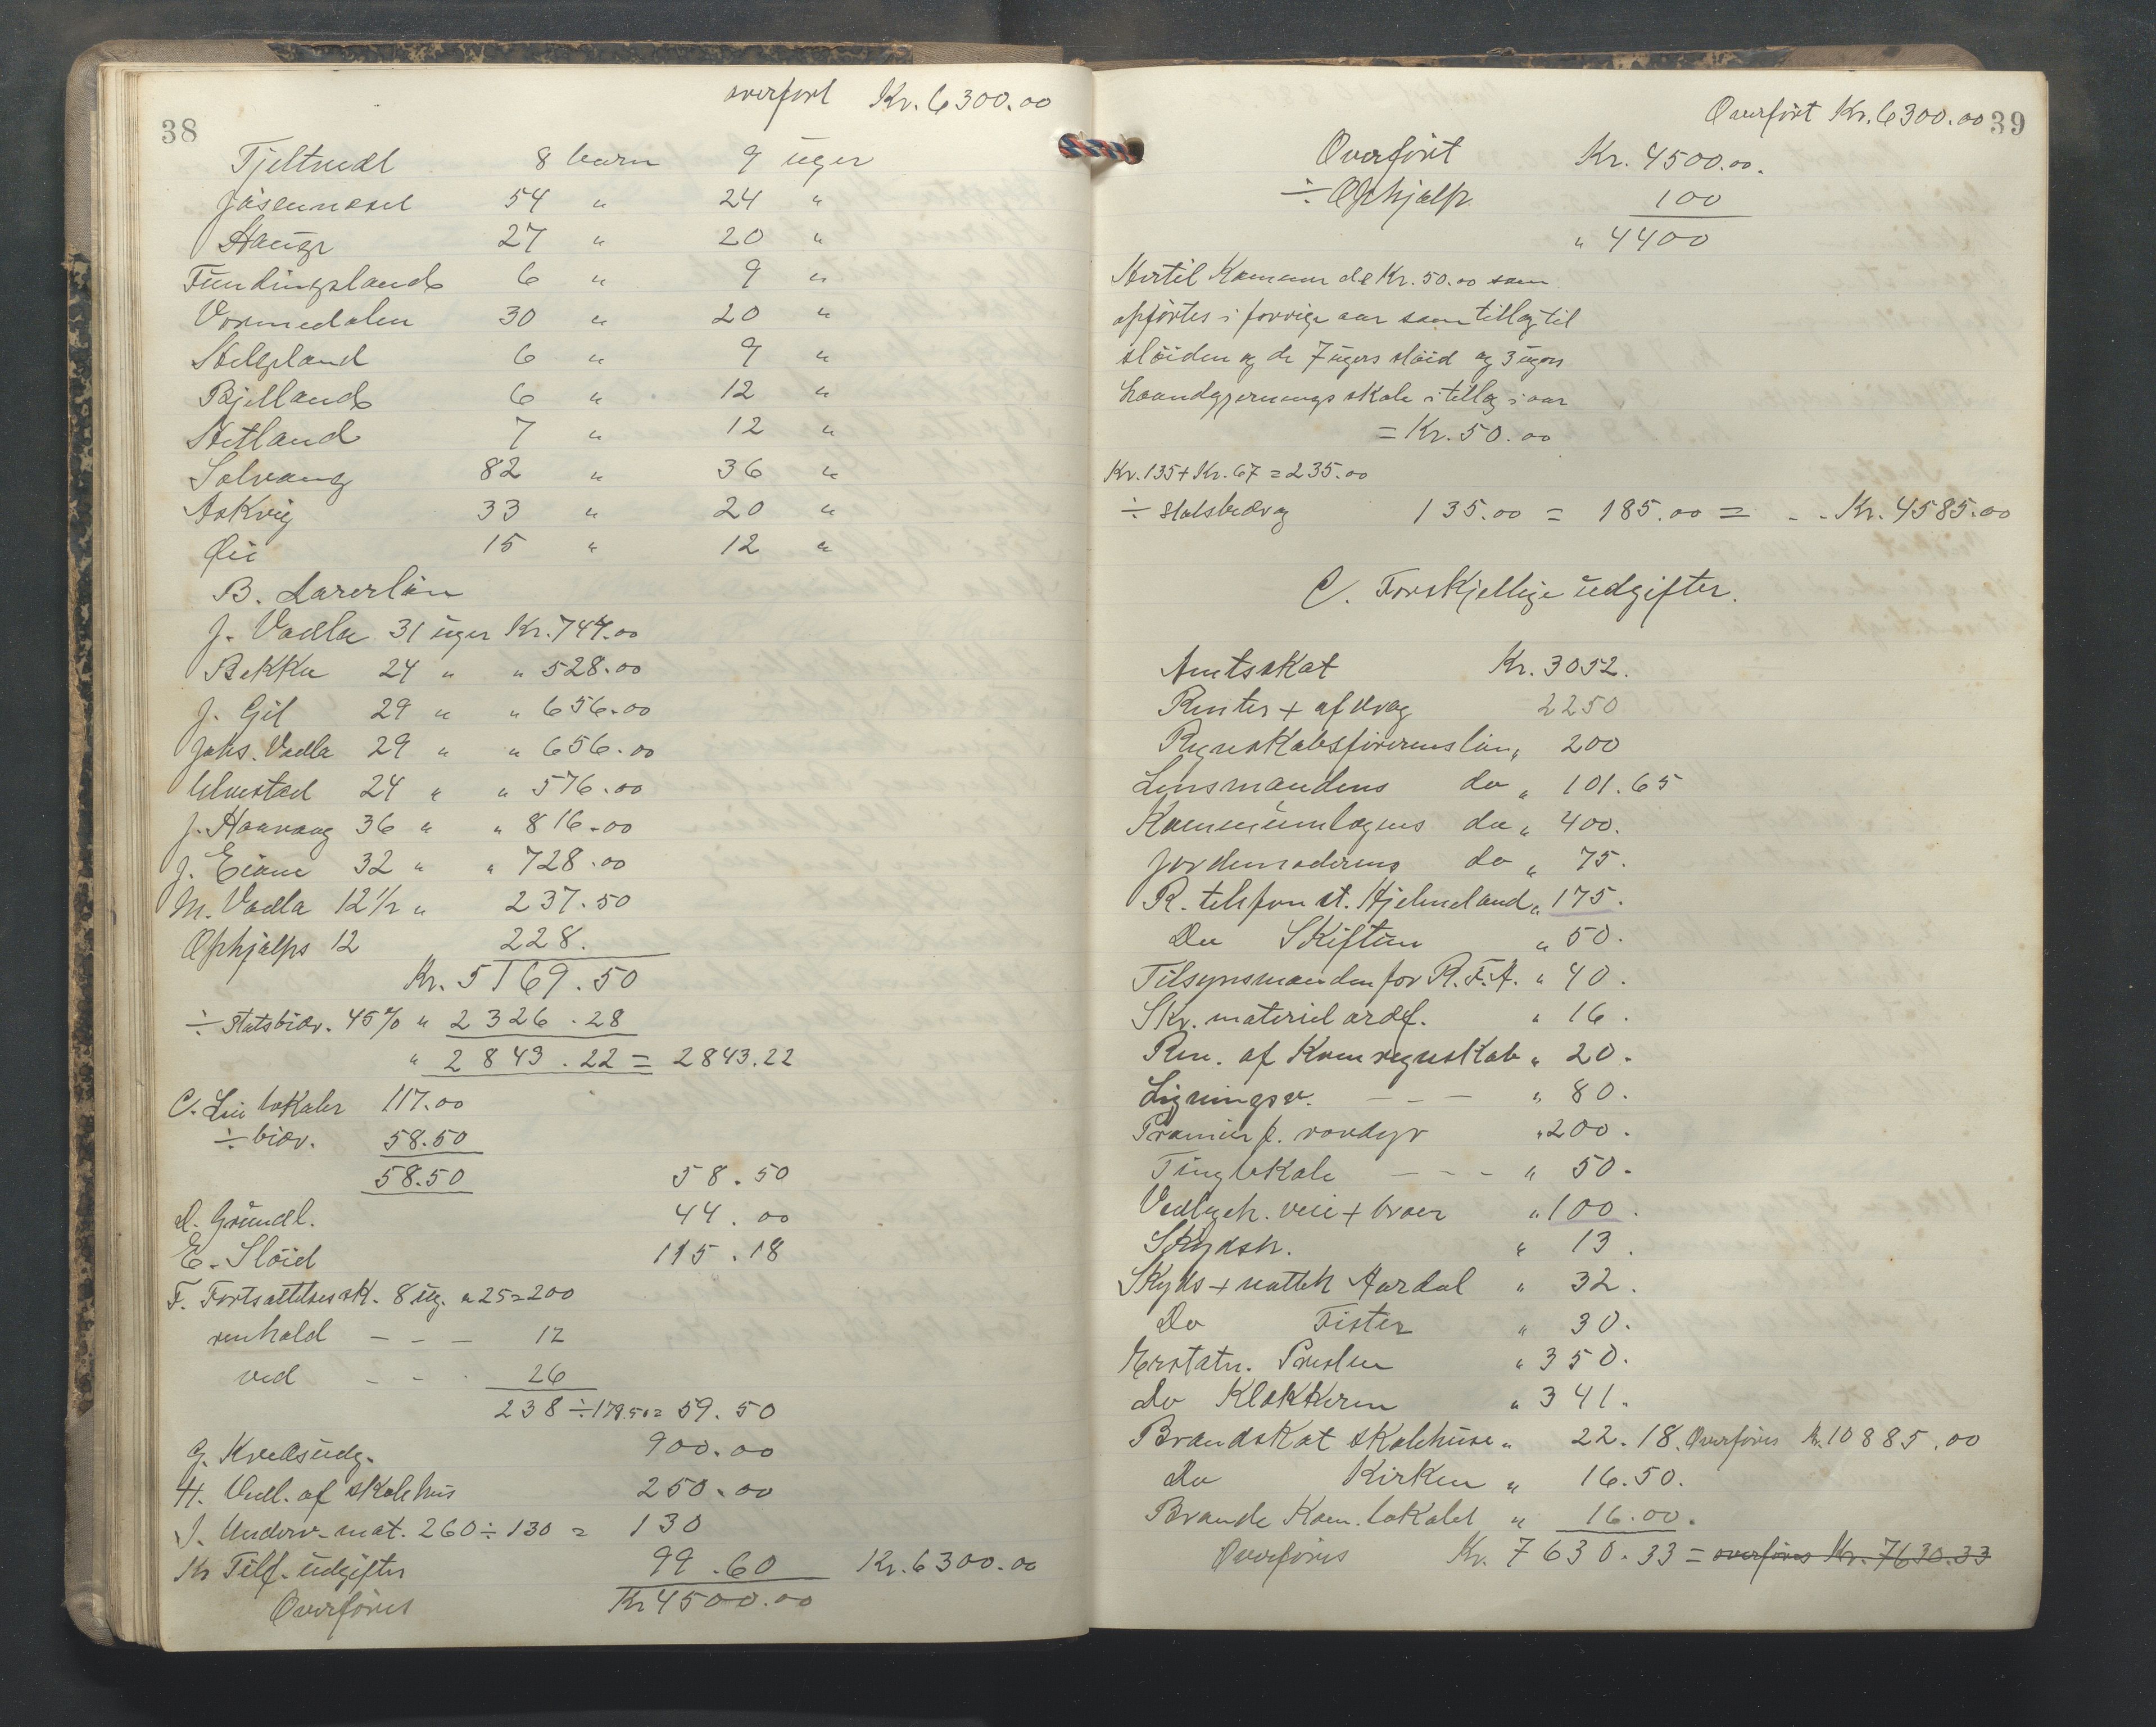 38
overført Kr. 6300.00
Tjeltvedt 8 barn 9 uger
Jøsenneset 54 " 24 "
Hauge 27 " 20 "
Fundingsland 6 " 9 "
Vormedalen 30 " 20 "
Helgland 6 " 9 "
Bjelland 6 " 12 "
Hetland 7 " 12 "
Solvang 82 " 36 "
Askvig 33 " 20 "
Øie 15 " 12 "
B. Lærerløn
J. Vadla 31 uger Kr. 744.00
Bekka 24 " " 528.00
J. Gil 29 " " 656.00
Johs. Vadla 29 " " 656.00
Ulvestad 24 " " 576.00
J. Haavaag 36 " " 816.00
J. Eiane 32 " " 728.00
M. Vadla 12 1/2 " 237.50
Ophjælps 12 228.
Kr. 5169.50
÷ Statsbidr. 45% " 2326.28
" 2843.22 = 2843.22
C. Leie lokaler 117.00
÷ bidr. 58.50
58.50 58.50
D. Grundl. 44.00
E. Sløid 115.18
F. Fortsættelsessk. 8 ug. a 25 = 200
renhold - - - 12
ved - - - 26
238 ÷ 178.50 = 59.50
G. Kredsudg. 900.00
H. Vedl. af skolehus 250.00
J. Underv. mat. 260 ÷ 130 = 130
K. Tilf. udgifter 99.60 Kr. 6300.00
Overføres Kr 4500.00
Overført Kr. 6300.00 39
Overført Kr. 4500.00.
÷ Ophjælp 100
" 4400
Hertil kommer de Kr. 50.00 som
opførtes i forrige aar som tillæg til
sløiden og de 7 ugers sløid og 3 ugers
haandgjerningsskole i tillæg i aar
= Kr. 50.00
Kr. 135 + Kr. 67 = 235.00
÷ statsbidrag 135.00 = 185.00 = - - Kr. 4585.00
C. Forskjellige udgifter.
Amtsskat Kr. 3052.
Renter + afdrag 2250
Regnskabsførerens løn " 200
Lensmandens do " 101.65
Kommunelægens do " 400.
Jordemoderens do " 75.
R. telefon st. Hjelmeland " 175.
Do Skiftun " 50.
Tilsynsmanden for R. F. A. " 40.
Skr. materiel ordf. " 16.
Rev. af Komregnskab " 20.
Ligningsv. - - - " 80.
Præmier f. rovdyr " 200.
Tinglokale - - - " 50.
Vedligeh. veie + broer " 100.
Skydsh. " 13.
Skyds + natteh Aardal " 32.
Do Fister " 30.
Erstatn. Presten " 350.
Do Klokkeren " 341.
Brandskat skolehuse " 22.18. Overføres Kr. 10885.00
Do Kirken " 16.50.
Brands Kom. lokalet " 16.00.
Overføres Kr. 7630.33 = overføres Kr. 7630.33